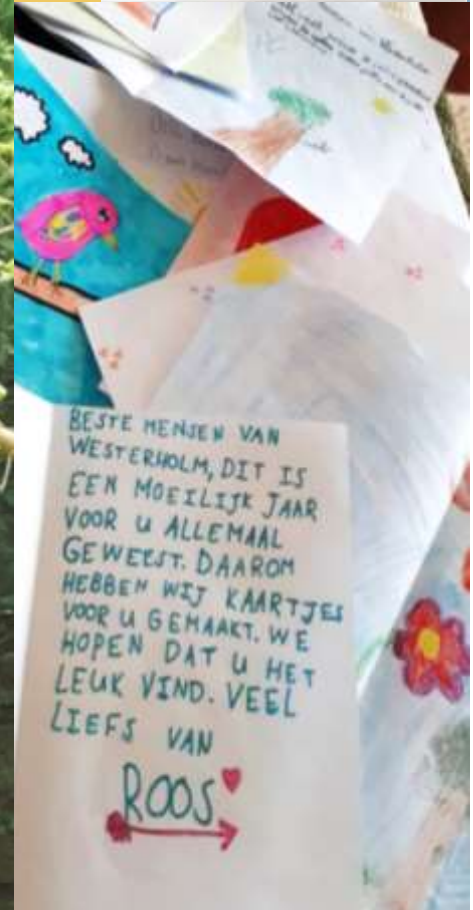 BESTE MENSEN VAN
WESTERHOLM, DIT IS
EEN MOEILIJK JAAR
VOOR U ALLEMAAL
GEWEEST. DAAROM
HEBBEN WIJ KAARTJES
VOOR U GEMAAKT. WE
HOPEN DAT U HET
LEUK VIND. VEEL
LIEFS VAN
ROOS